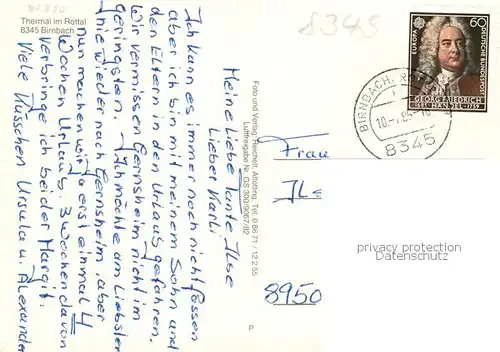 Thermal im Rottal
8345 Birnbach
Meine liebe Tante Ilse
Lieber Karli
Ich kann es immer noch nicht fassen
aber ich bin mit meinem Sohn und
den Eltern in den Urlaub gefahren.
Wir vermissen Gernsheim nicht im
geringsten. Ich möchte am Liebsten
nie wieder nach Gernsheim, aber
nun machen wir ja erst einmal 4
Wochen Urlaub. 3 Wochen davon
verbringe ich bei der Margit.
Viele Küsschen Ursula u. Alexander
Foto und Verlag: Reichelt, Altötting, Tel. 0 86 71 / 12 2 55
Luftfreigabe Nr. GS 300/9067/82
P
8345
EUROPA
60
DEUTSCHE BUNDESPOST
GEORG FRIEDRICH
HÄNDEL
BIRNBACH,
8345
Frau
Ilse
8950
privacy protection
VIADAMO.DE